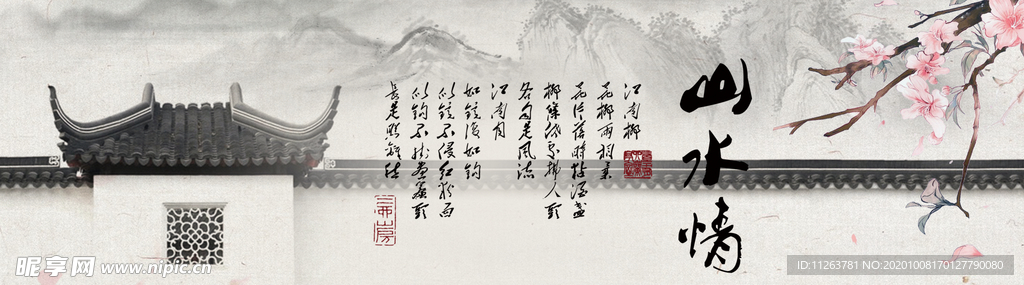 山水情
江南柳
花柳两相柔
花片落时黏酒盏
柳条低处拂人头
各自是风流
江南月
如镜复如钩
似镜不侵红粉面
似钩不挂画帘头
长是照离愁
昵享网 www.nipic.cn
ID:11263781 NO:20201008170127790080